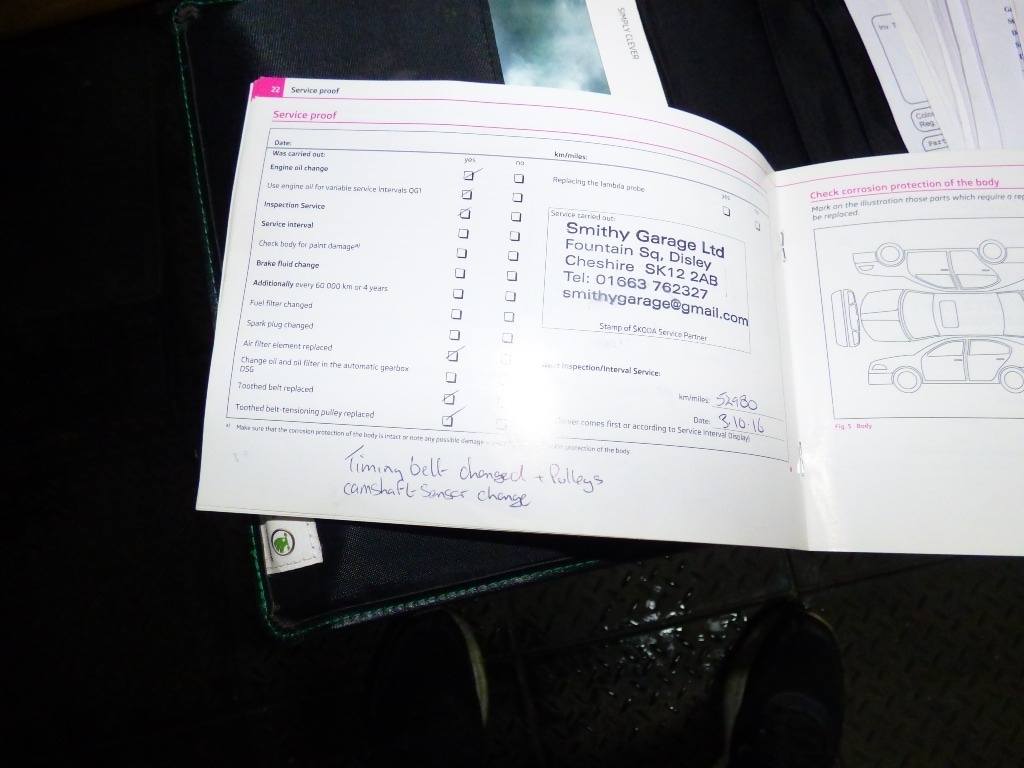 SIMPLY CLEVER
22 Service proof
Service proof
Date:
km/miles:
Was carried out:
yes no
Engine oil change
Use engine oil for variable service intervals QG1
Inspection Service
Service interval
Check body for paint damage a)
Brake fluid change
Additionally every 60 000 km or 4 years
Fuel filter changed
Spark plug changed
Air filter element replaced
Change oil and oil filter in the automatic gearbox
DSG
Toothed belt replaced
Toothed belt-tensioning pulley replaced
a) Make sure that the corrosion protection of the body is intact or note any possible damage protection of the body.
Replacing the lambda probe
yes
Service carried out:
Smithy Garage Ltd
Fountain Sq, Disley
Cheshire SK12 2AB
Tel: 01663 762327
smithygarage@gmail.com
Stamp of ŠKODA Service Partner
Inspection/Interval Service:
km/miles: 52980
Date: 3.10.16
comes first or according to Service Interval Display)
Timing belt changed + Pulleys
camshaft sensor change
Check corrosion protection of the body
Mark on the illustration those parts which require a
be replaced.
Fig. 5 Body
Inv. T
Colo
Reg
Part